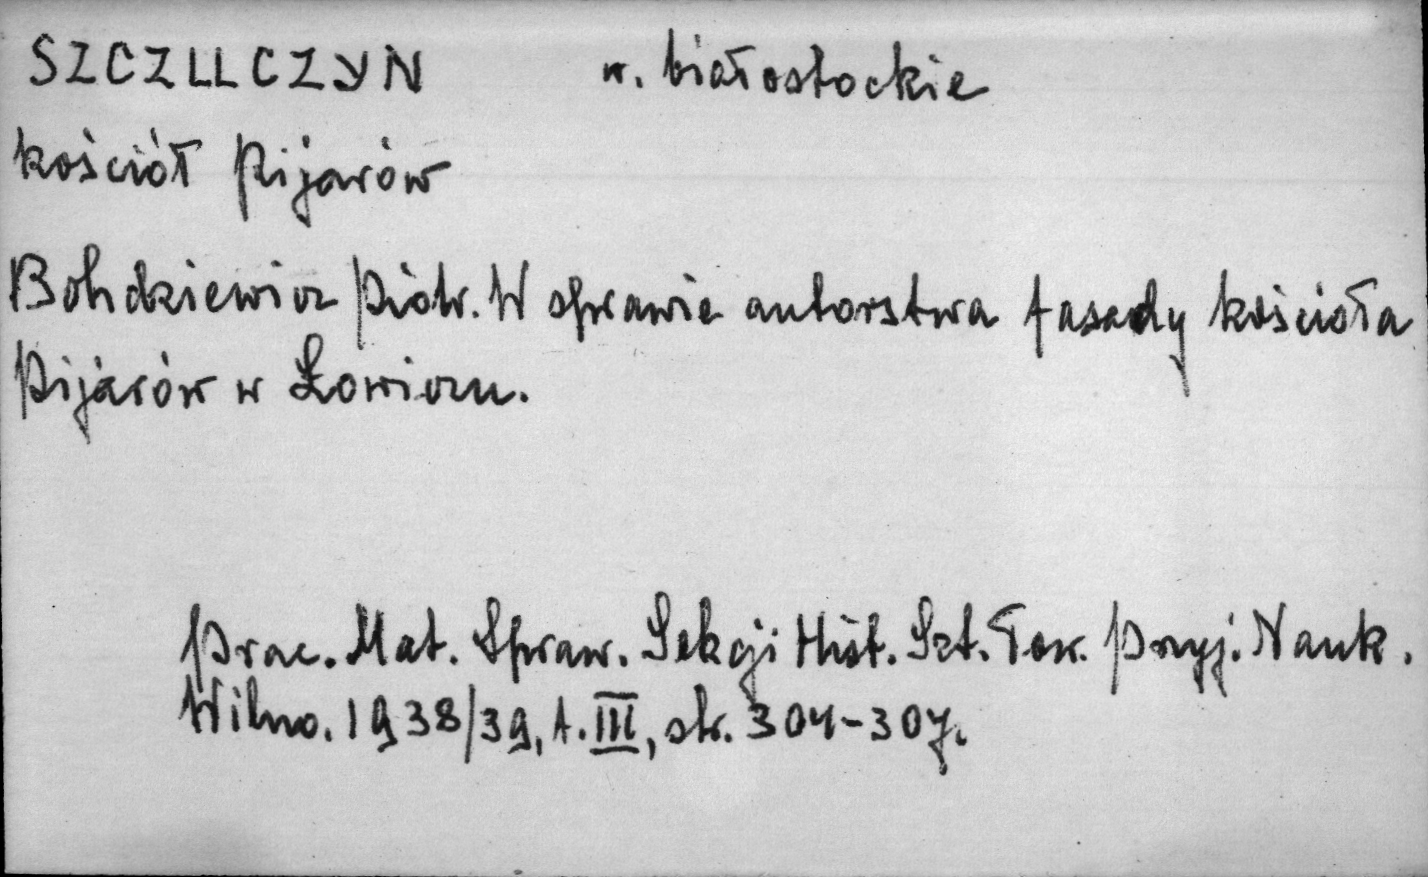 SZCZUCZYN w. białostockie
kościół Pijarów
Bohdziewicz Piotr. W sprawie autorstwa fasady kościoła
Pijarów w Łowiczu.
Prac. Mat. Spraw. Sekcji Hist. Szt. Tow. Przyj. Nauk.
Wilno. 1938/39, t. III, str. 304-307.